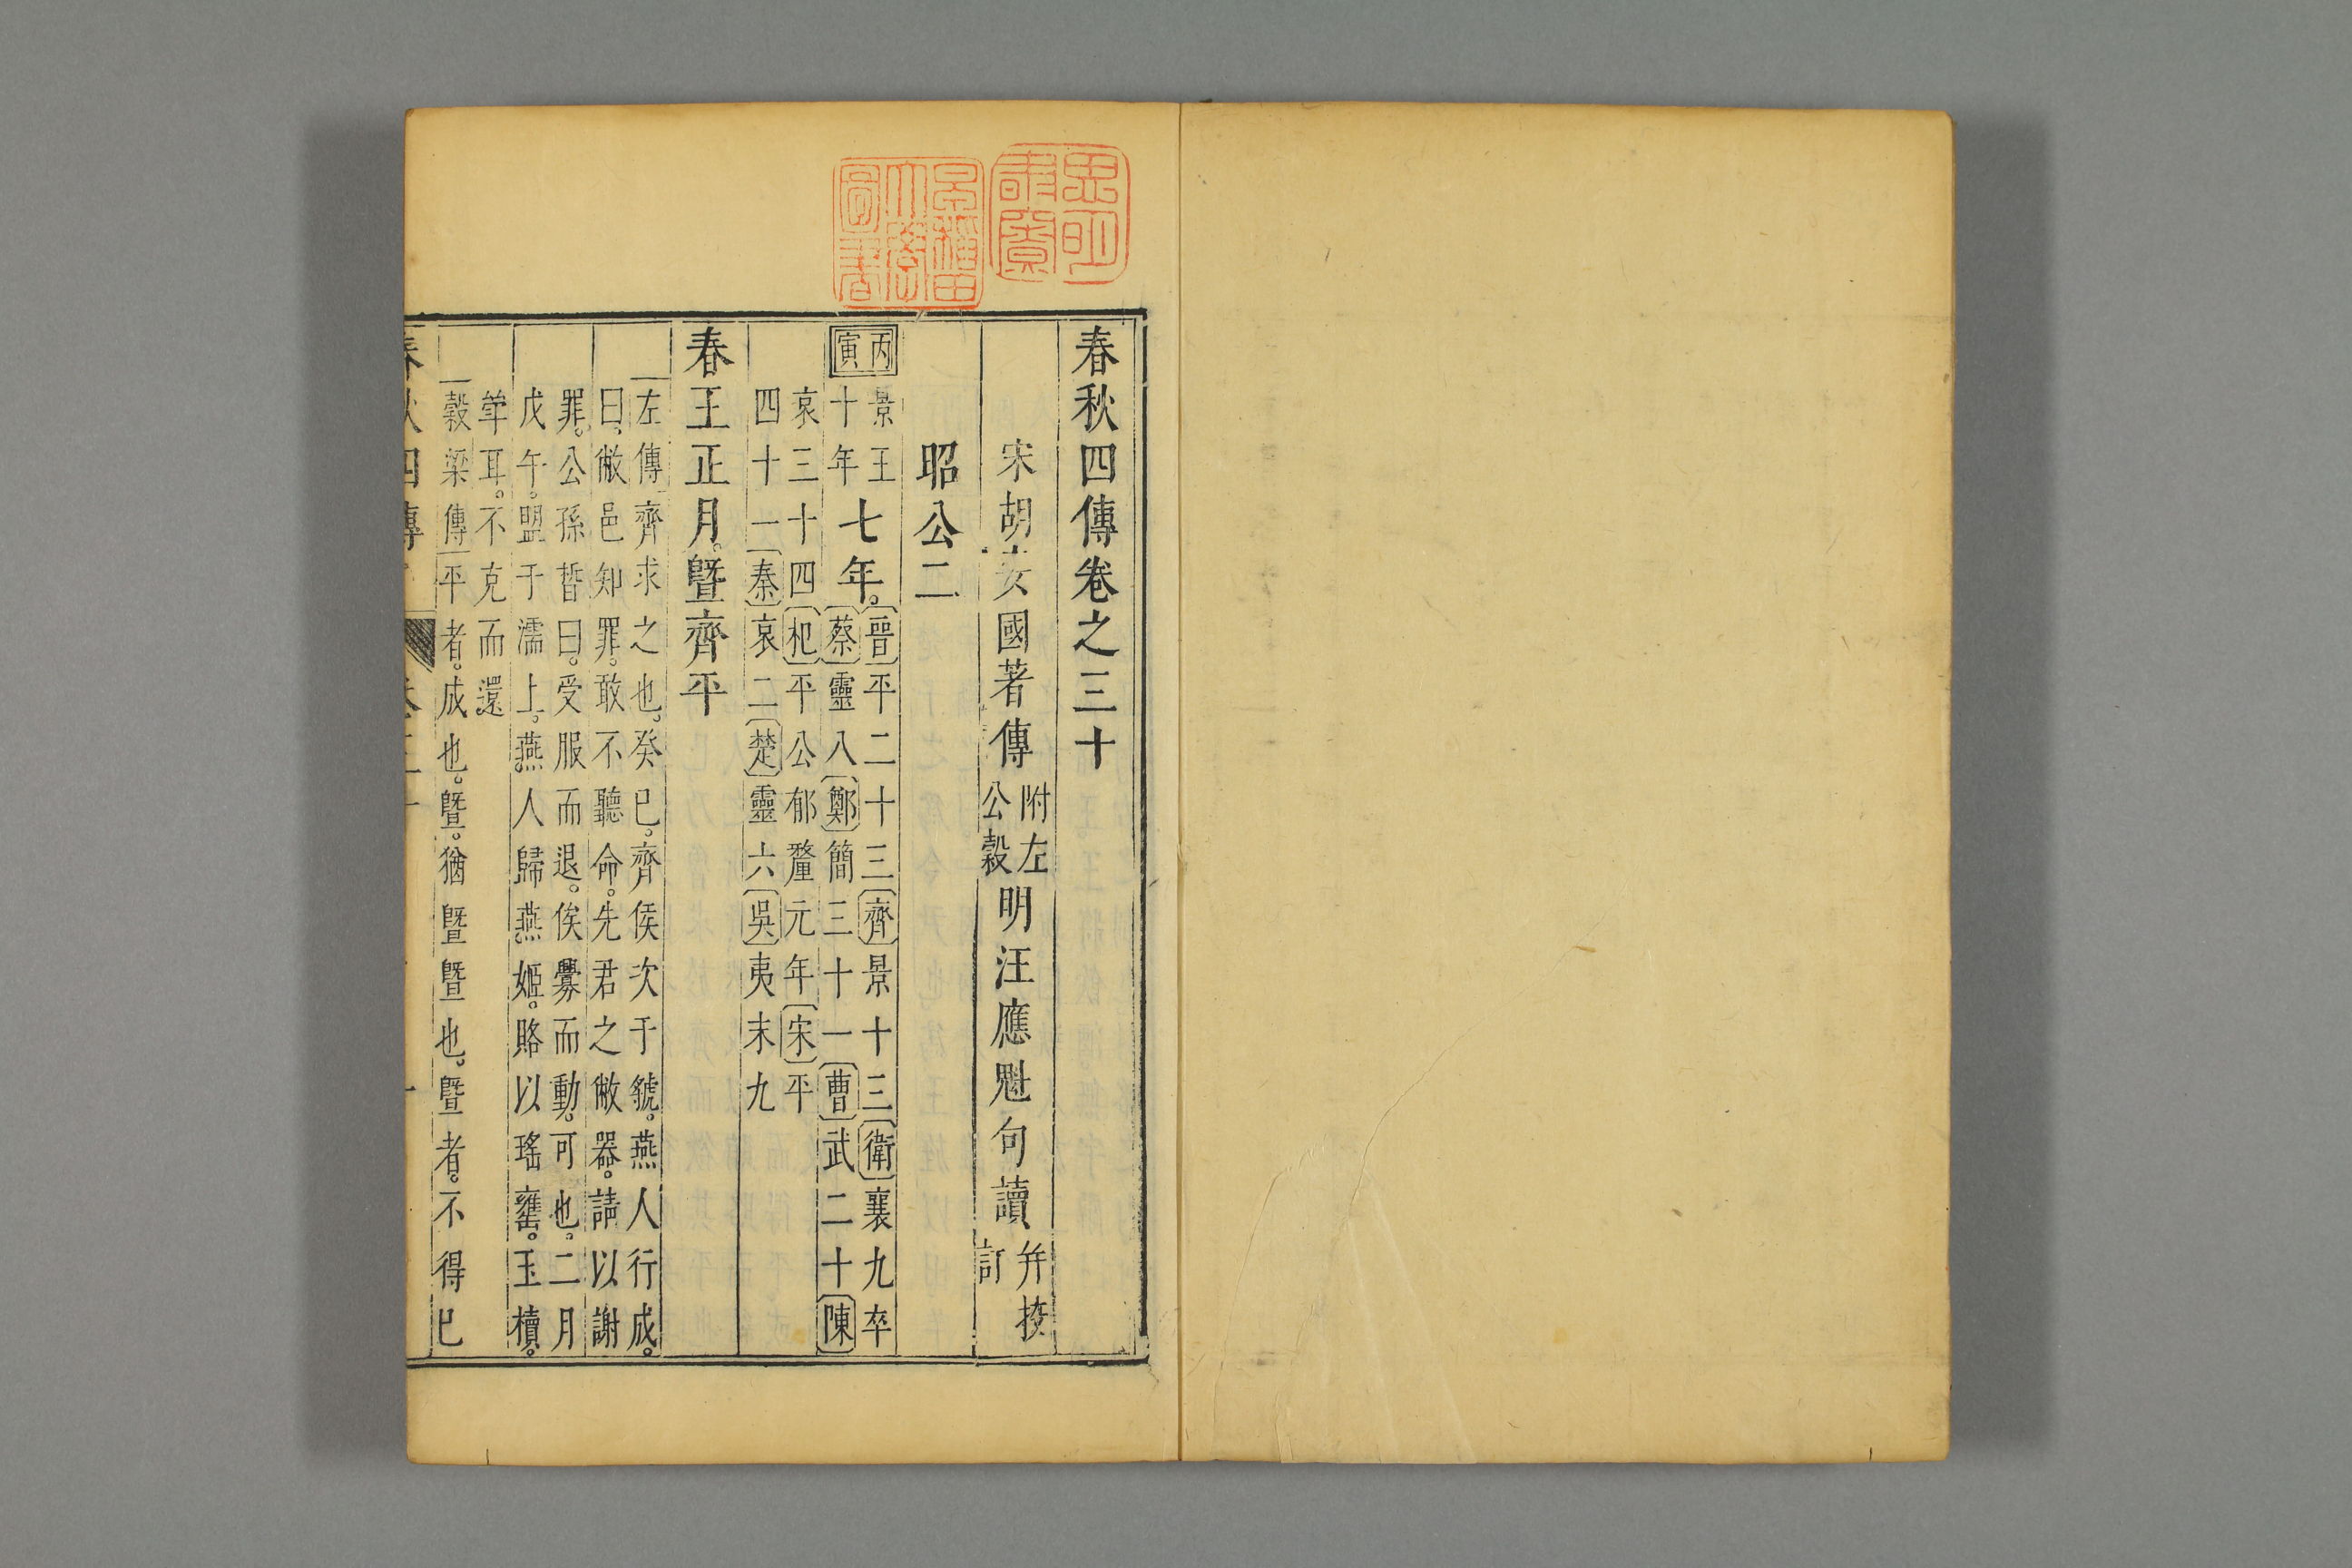 春秋四傳卷之三十
宋胡安國著傳附左公穀明汪應魁句讀并挍訂
昭公二
丙寅
景王十年七年。〔晉〕平二十三〔齊〕景十三〔衛〕襄九卒
〔蔡〕靈八〔鄭〕簡三十一〔曹〕武二十〔陳〕
哀三十四〔杞〕平公郁釐元年〔宋〕平
四十一〔秦〕哀二〔楚〕靈六〔吳〕夷末九
春王正月。暨齊平
左傳齊求之也。癸巳。齊侯次于虢。燕人行成。
曰。敝邑知罪。敢不聽命。先君之敝器。請以謝
罪。公孫晳曰。受服而退。俟釁而動。可也。二月
戊午。盟于濡上。燕人歸燕姬。賂以瑤罋。玉櫝。
斝耳。不克而還
穀梁傳平者。成也。曁。猶曁曁也。曁者。不得已
早稻田大學圖書